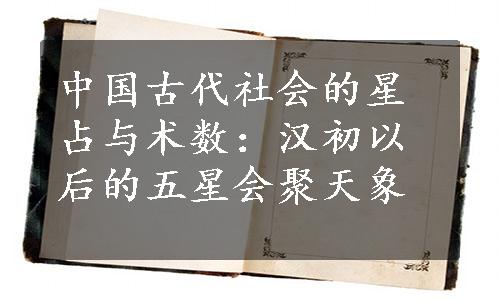 中国古代社会的星
占与术数：汉初以
后的五星会聚天象